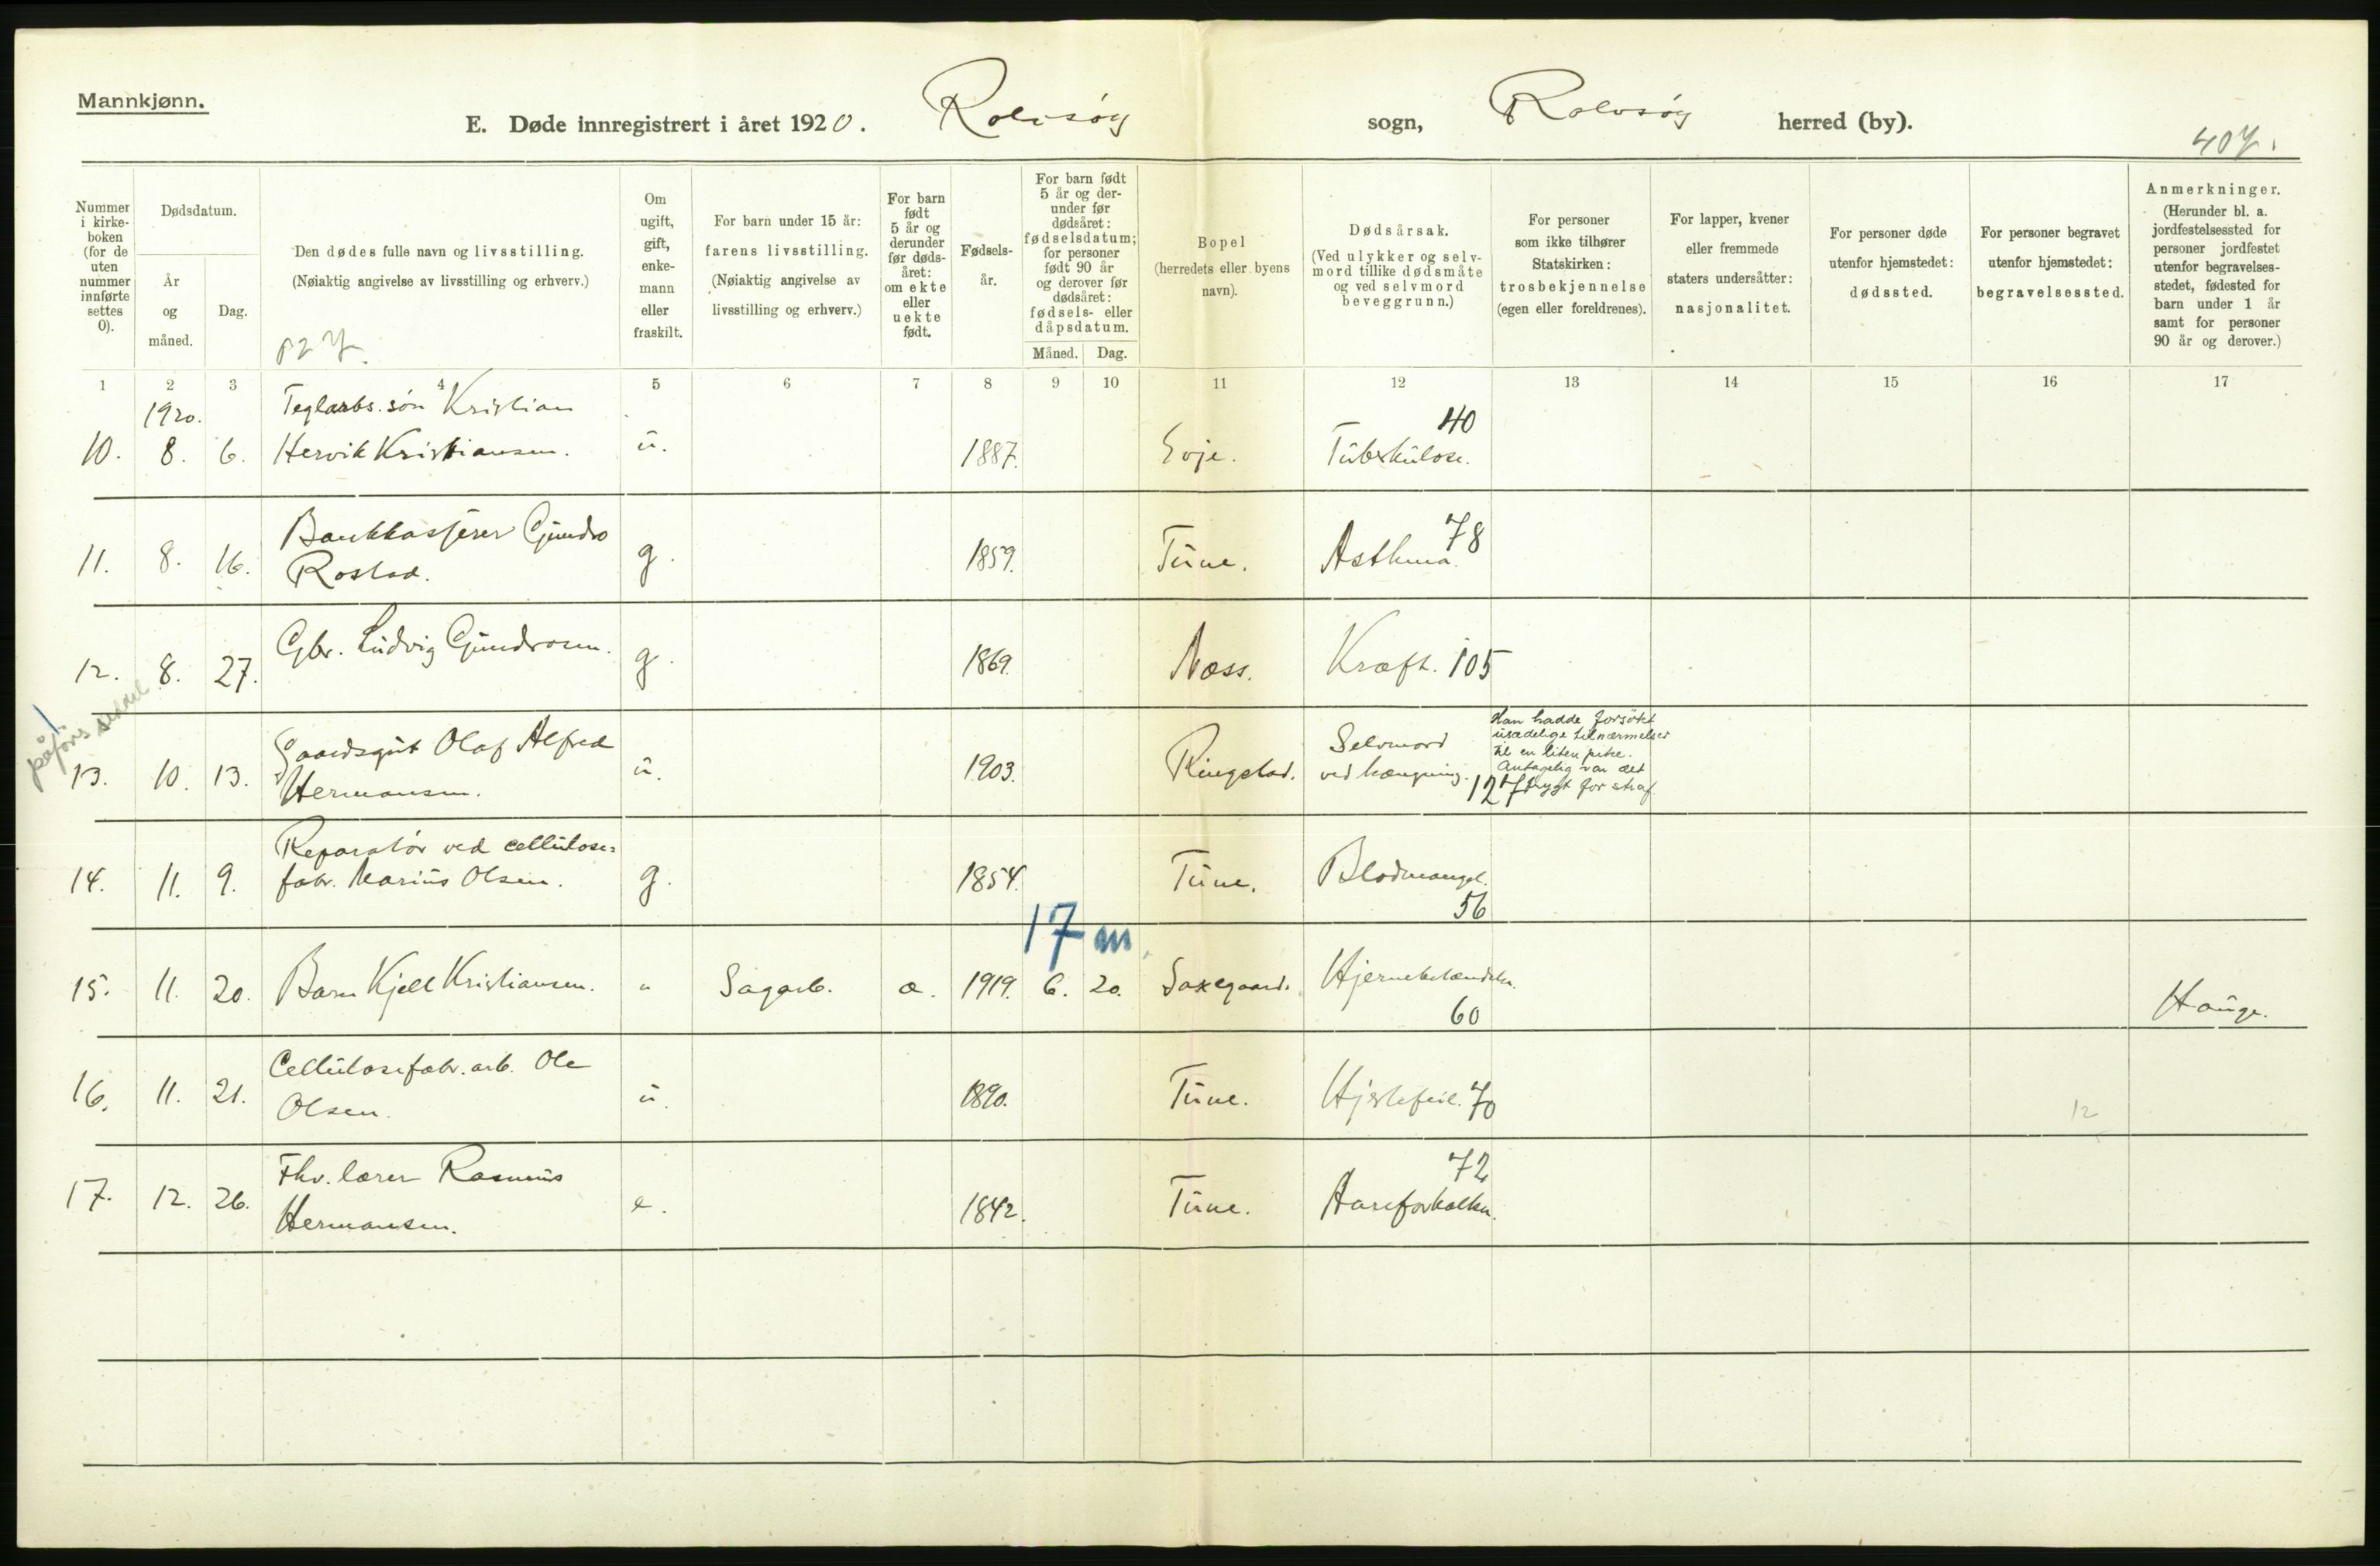 Mannkjønn.
E. Døde innregistrert i året 1920. Rolvsøy sogn, Rolvsøy herred (by).
407.
Nummer i kirkeboken (for de uten nummer innførte settes 0).
Dødsdatum.
År og måned.
Dag.
Den dødes fulle navn og livsstilling.
(Nøiaktig angivelse av livsstilling og erhverv.)
Om ugift, gift, enkemann eller fraskilt.
For barn under 15 år:
farens livsstilling.
(Nøiaktig angivelse av livsstilling og erhverv.)
For barn født 5 år og derunder før dødsåret: om ekte eller uekte født.
Fødselsår.
For barn født 5 år og derunder før dødsåret: fødselsdatum; for personer født 90 år og derover før dødsåret: fødsels- eller dåpsdatum.
Måned. Dag.
Bopel
(herredets eller byens navn).
Dødsårsak.
(Ved ulykker og selvmord tillike dødsmåte og ved selvmord beveggrunn.)
For personer som ikke tilhører Statskirken:
trosbekjennelse
(egen eller foreldrenes).
For lapper, kvener eller fremmede staters undersåtter:
nasjonalitet.
For personer døde utenfor hjemstedet:
dødssted.
For personer begravet utenfor hjemstedet:
begravelsessted.
Anmerkninger.
(Herunder bl. a. jordfestelsessted for personer jordfestet utenfor begravelsesstedet, fødested for barn under 1 år samt for personer 90 år og derover.)
1 2 3 4 5 6 7 8 9 10 11 12 13 14 15 16 17
1920. Teglarbs. søn Kristian 40
10. 8. 6. Hervik Kristiansen. u. 1887. Evje. Tuberkulose.
Bankkasserer Gundro 78
11. 8. 16. Rostad. g. 1859. Tune. Asthma.
12. 8. 27. Gbr. Ludvig Gundrosen. g. 1869. Næss. Kræft. 105
påførs seddel
Gaardsgut Olaf Alfred Selvmord
13. 10. 13. Hermansen. u. 1903. Ringstad. ved hængning. 127
Han hadde forsøkt
usædelige tilnærmelser
til en liten pike.
Antagelig var det
frygt for straf.
Reparatør ved cellulose=
14. 11. 9. fabr. Marius Olsen. g. 1854. Tune. Blodmangel.
56
17 m.
15. 11. 20. Barn Kjell Kristiansen. " Sagarb. æ. 1919. 6. 20. Saxegaard. Hjernebetændelse. Hauge.
60
Cellulosefabr. arb. Ole
16. 11. 21. Olsen. u. 1890. Tune. Hjertefeil. 70 12
Fhv. lærer Rasmus 72
17. 12. 26. Hermansen. e. 1842. Tune. Aareforkalkn.